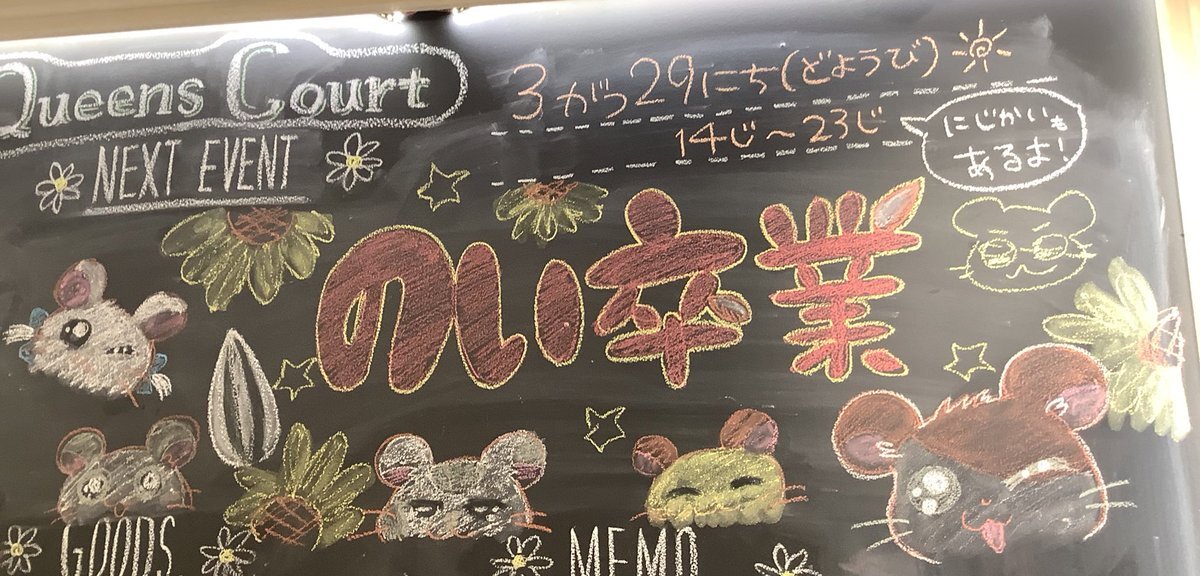 Queens Court
NEXT EVENT
3がつ29にち(どようび)
14じ～23じ
にじかいも
あるよ!
のい卒業
GOODS
MEMO